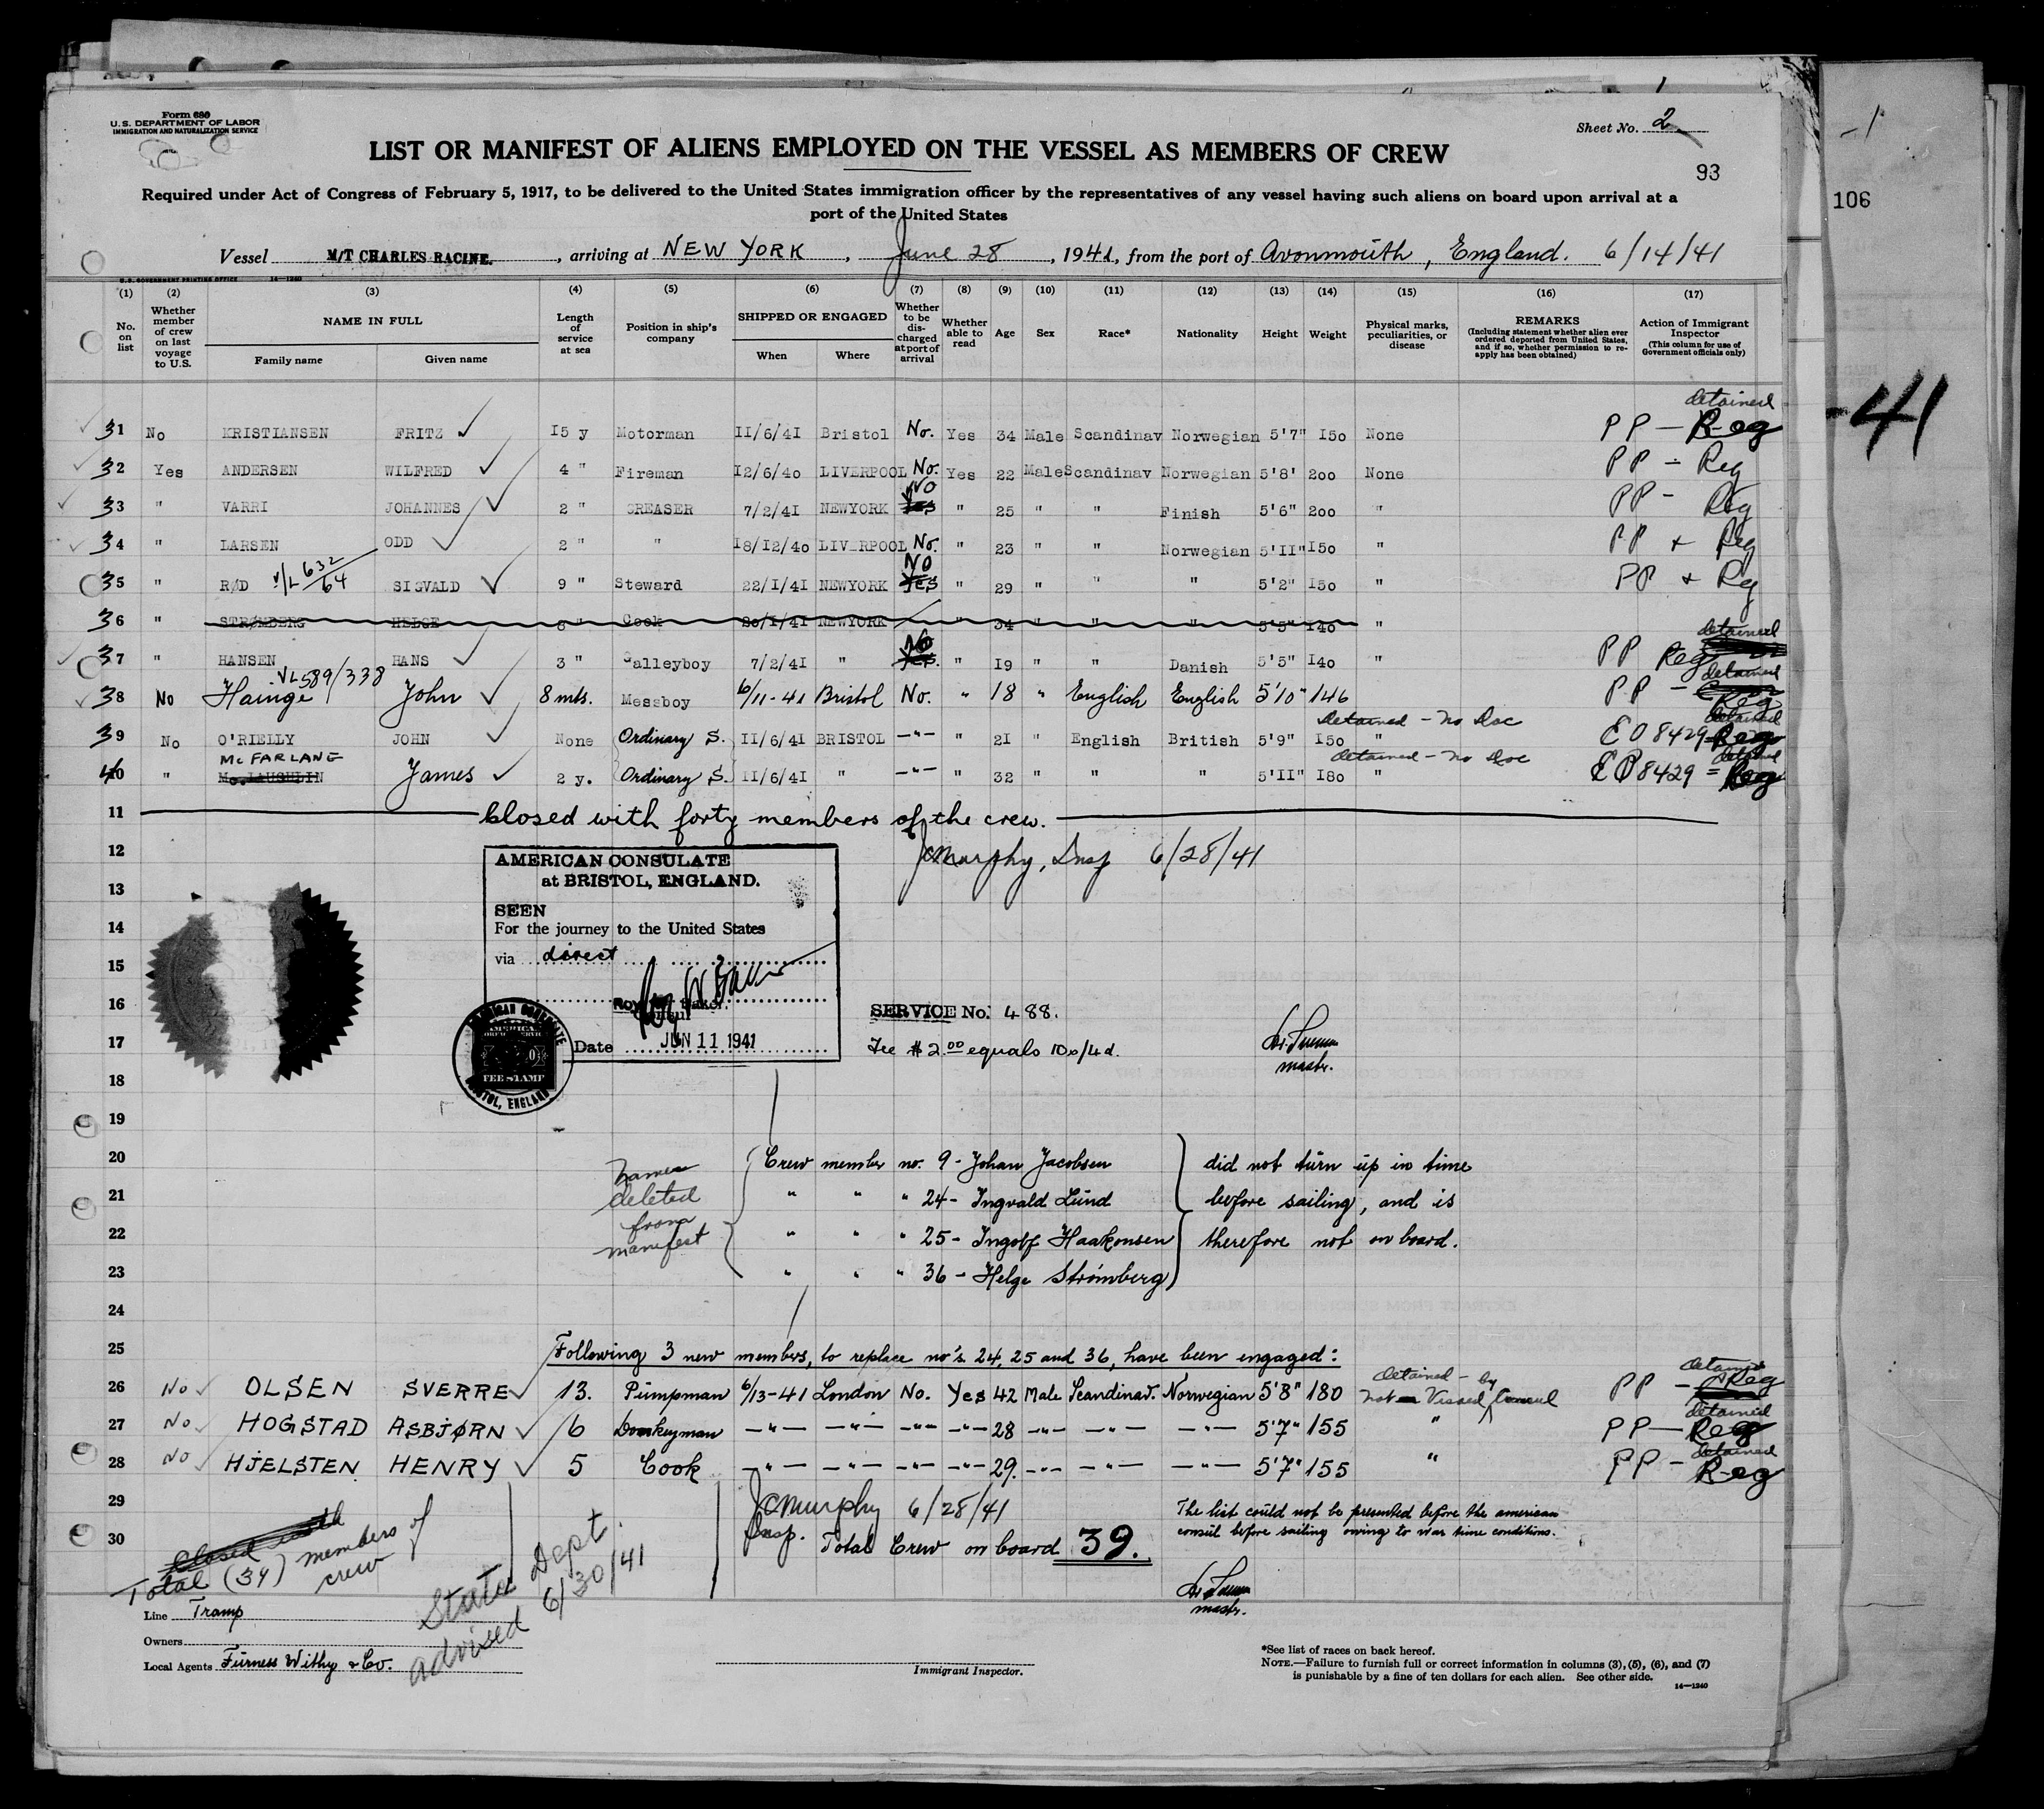 Form 680
U.S. DEPARTMENT OF LABOR
IMMIGRATION AND NATURALIZATION SERVICE
Sheet No. 2
93
106
-41
LIST OR MANIFEST OF ALIENS EMPLOYED ON THE VESSEL AS MEMBERS OF CREW
Required under Act of Congress of February 5, 1917, to be delivered to the United States immigration officer by the representatives of any vessel having such aliens on board upon arrival at a
port of the United States
Vessel M/T CHARLES RACINE. , arriving at NEW YORK , June 28 , 1941, from the port of Avonmouth, England. 6/14/41
U.S. GOVERNMENT PRINTING OFFICE 14-1240
(1) (2) (3) (4) (5) (6) (7) (8) (9) (10) (11) (12) (13) (14) (15) (16) (17)
No. on list
Whether member of crew on last voyage to U.S.
NAME IN FULL
Family name Given name
Length of service at sea
Position in ship's company
SHIPPED OR ENGAGED
When Where
Whether to be discharged at port of arrival
Whether able to read
Age Sex Race* Nationality Height Weight
Physical marks, peculiarities, or disease
REMARKS
(Including statement whether alien ever ordered deported from United States, and if so, whether permission to reapply has been obtained)
Action of Immigrant Inspector
(This column for use of Government officials only)
detained
31 No KRISTIANSEN FRITZ 15 y Motorman II/6/4I Bristol No. Yes 34 Male Scandinav Norwegian 5'7" I50 None PP - Reg
32 Yes ANDERSEN WILFRED 4 " Fireman I2/6/40 LIVERPOOL No. Yes 22 Male Scandinav Norwegian 5'8' 200 None PP - Reg
33 " VARRI JOHANNES 2 " GREASER 7/2/4I NEWYORK No Yes " 25 " " Finish 5'6" 200 " PP - Reg
34 " LARSEN ODD 2 " " I8/I2/40 LIVERPOOL No. " 23 " " Norwegian 5'II" I50 " PP + Reg
35 " RØD V/L 632/64 SIGVALD 9 " Steward 22/I/4I NEWYORK No Yes " 29 " " " 5'2" I50 " PP + Reg
36 " STRØMBERG HELGE 8 " Cook 20/I/4I NEWYORK " 34 " " " 5'5" I40 "
37 " HANSEN HANS 3 " Galleyboy 7/2/4I " No Yes. " I9 " " Danish 5'5" I40 " PP Reg detained
38 No Hainge VL 589/338 John 8 mts. Messboy 6/11-41 Bristol No. " 18 " English English 5'10" 146 PP - Reg detained
detained - no Doc
39 No O'RIELLY JOHN None Ordinary S. II/6/4I BRISTOL -"- " 2I " English British 5'9" I50 " EO 8429 - Reg detained
McFARLANG detained - no Doc
40 " Mc. LAUGHLIN James 2 y. Ordinary S. II/6/4I " -"- " 32 " " " 5'II" I80 " EO 8429 = Reg detained
11 Closed with forty members of the crew.
12 JCMurphy, Insp 6/28/41
13
14
15
16
17
18
19
AMERICAN CONSULATE
at BRISTOL, ENGLAND.
SEEN
For the journey to the United States
via direct
Consul
Date JUN 11 1941
AMERICAN CONSULATE
FEE STAMP
BRISTOL, ENGLAND
SERVICE No. 488.
Fee $2.00 equals 10s/4d.
mastr.
Names deleted from manifest
20 Crew member no. 9 - Johan Jacobsen did not turn up in time
21 " " " 24 - Ingvald Lund before sailing, and is
22 " " " 25 - Ingolf Haakonsen therefore not on board.
23 " " " 36 - Helge Strömberg
24
25 Following 3 new members, to replace no's 24, 25 and 36, have been engaged:
26 No OLSEN SVERRE 13. Pumpman 6/13-41 London No. Yes 42 Male Scandinav. Norwegian 5'8" 180 detained - not Vissed by Consul PP - Reg detained
27 No HOGSTAD ASBJØRN 6 Donkeyman -"- -"- -"- -"- 28 -"- -"- -"- 5'7" 155 " PP - Reg detained
28 No HJELSTEN HENRY 5 Cook -"- -"- -"- -"- 29. -"- -"- -"- 5'7" 155 " PP - Reg detained
29 JCMurphy 6/28/41
Insp.
30 Total Crew on board 39.
The list could not be presented before the american
consul before sailing owing to war time conditions.
mastr.
Closed with
Total (39) members of
crew
State Dept.
advised 6/30/41
Line Tramp
Owners
Local Agents Furness Withy & Co.
Immigrant Inspector.
*See list of races on back hereof.
NOTE.—Failure to furnish full or correct information in columns (3), (5), (6), and (7)
is punishable by a fine of ten dollars for each alien. See other side.
14—1240